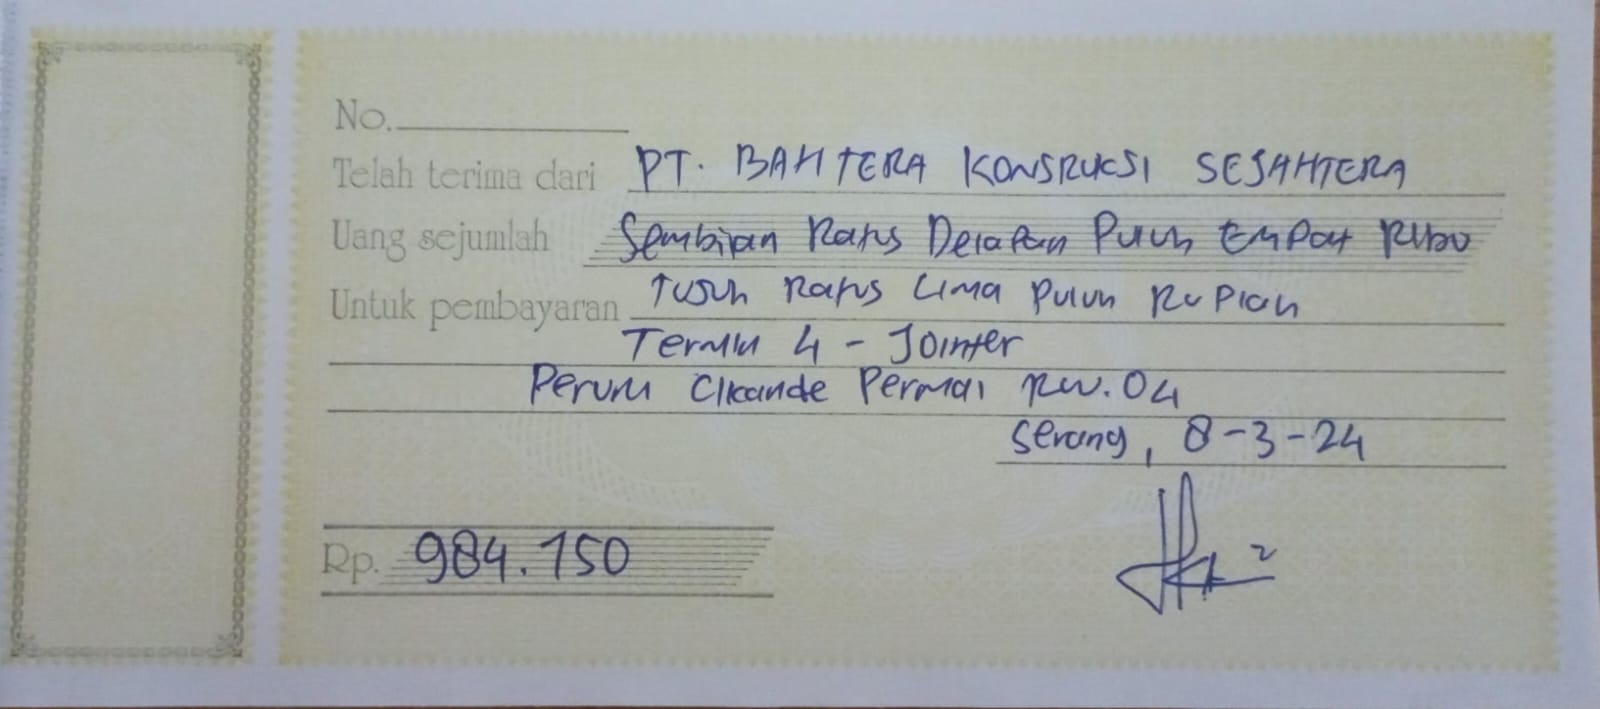 No.
Telah terima dari PT. BAHTERA KONSRUKSI SEJAHTERA
Uang sejumlah Sembilan Ratus Delapan Puluh Empat Ribu
Untuk pembayaran Tujuh Ratus Lima Puluh Rupiah
Termin 4 - Jointer
Perum Cikande Permai RW. 04
Serang, 8-3-24
Rp. 984.750